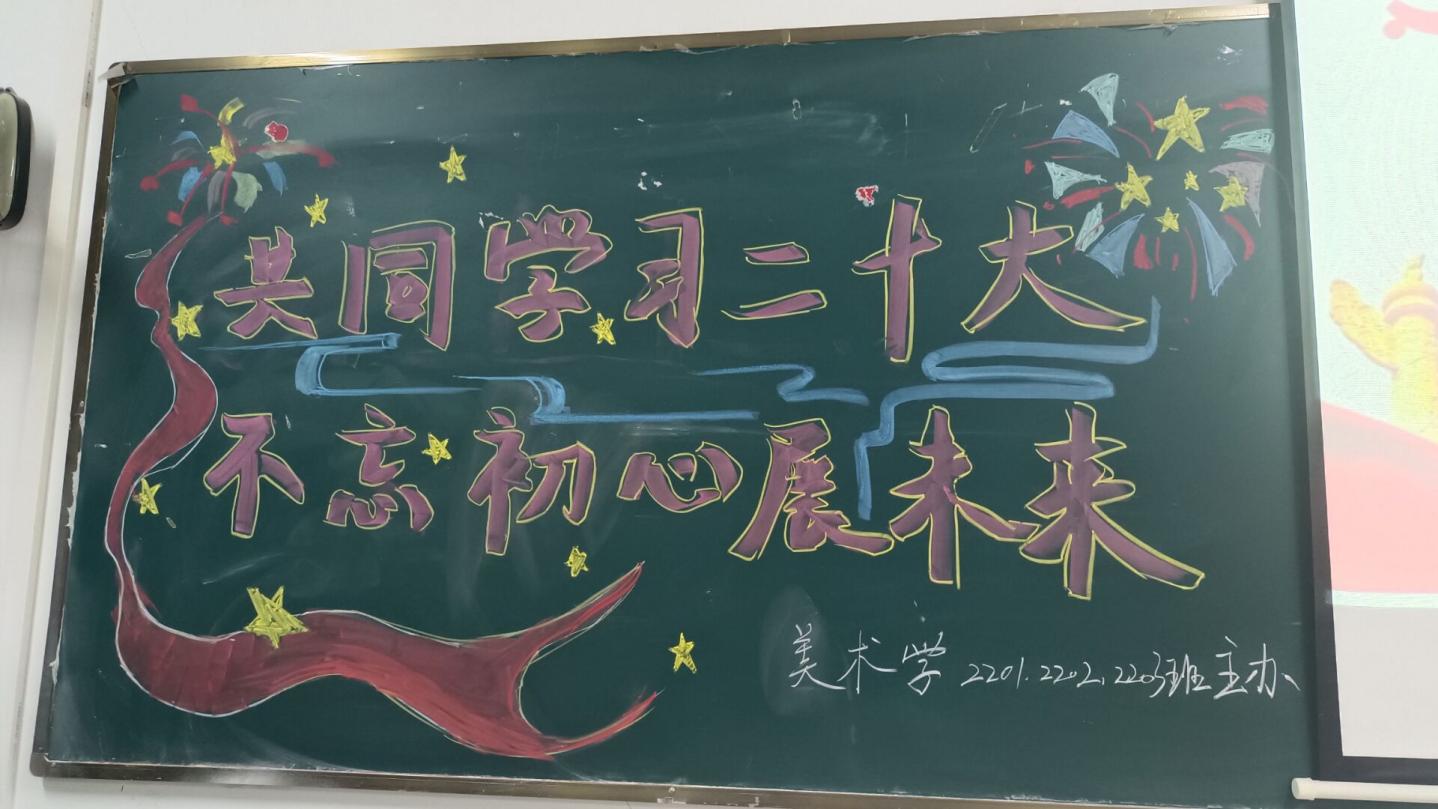 共同学习二十大
不忘初心展未来
美术学2201.2202.2203班主办